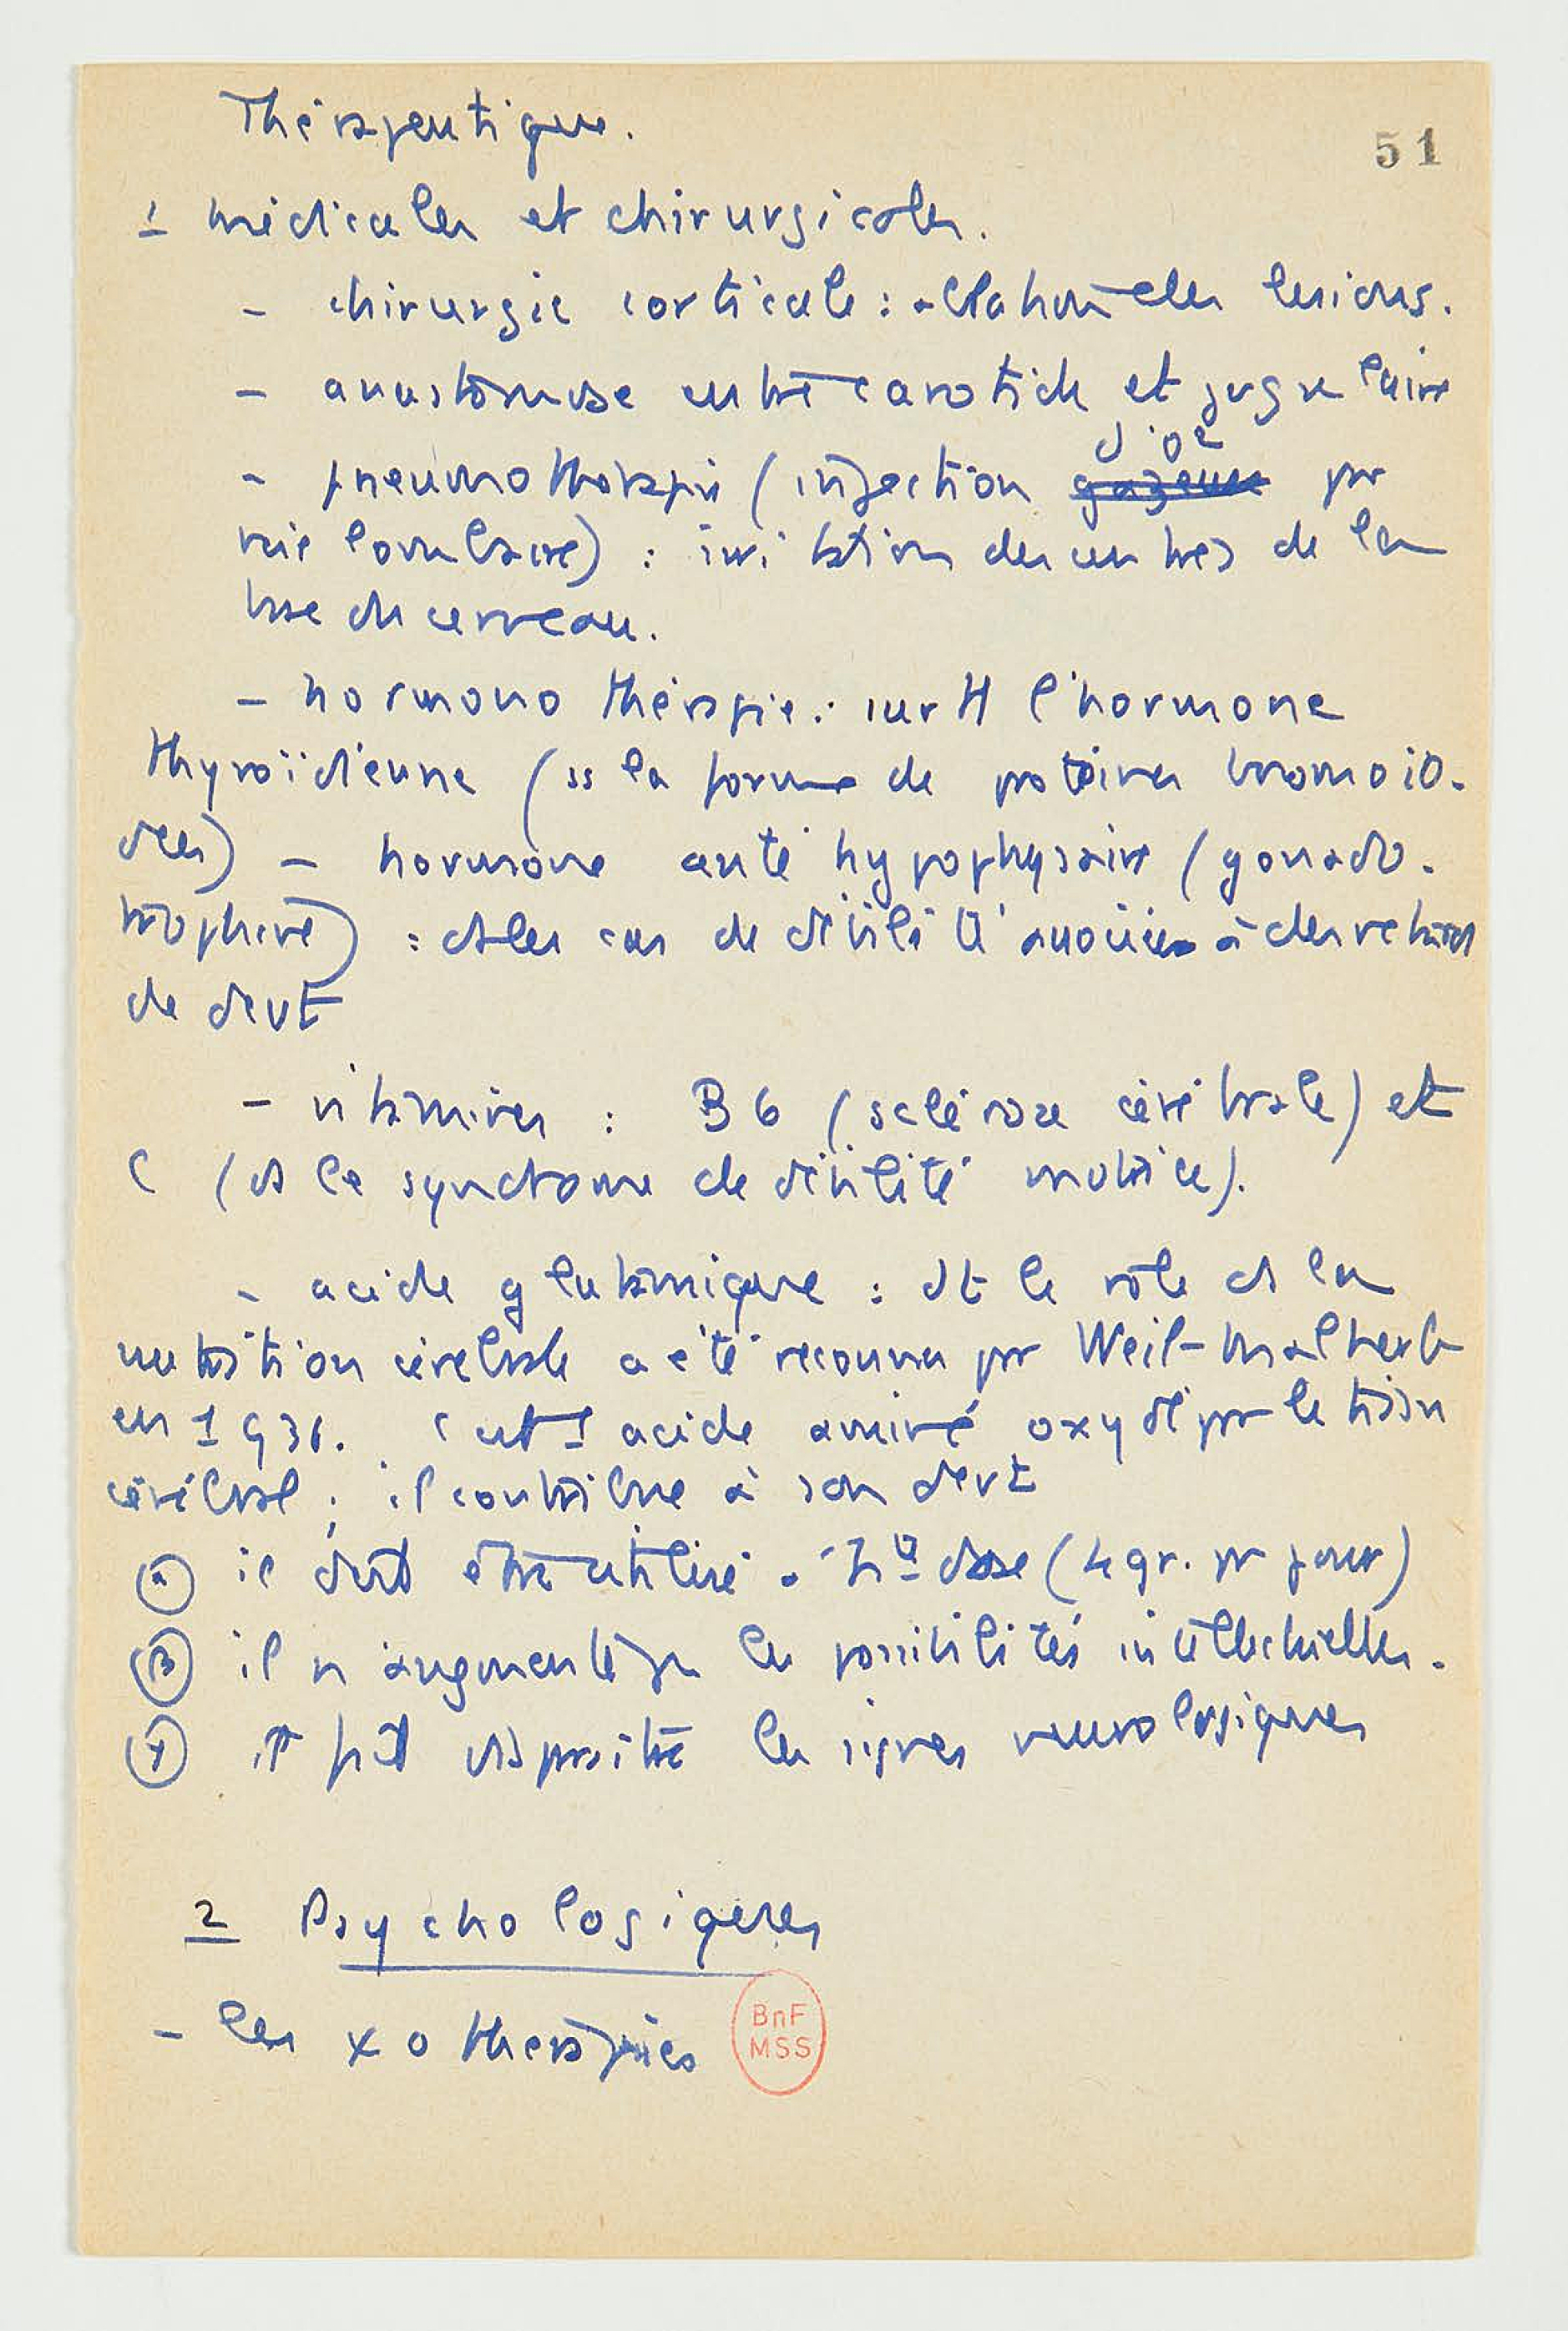 Thérapeutique.
51
1 médicales et chirurgicales.
- chirurgie corticale : ablation des lésions.
- anastomose entre carotide et jugulaire
d'O2
- pneumothérapie (injection gazeuse par
voie lombaire) : irritation des centres de la
base du cerveau.
- hormonothérapie : surtt l'hormone
thyroïdienne (ss la forme de protéines bromoio-
dées) – hormone anté hypophysaire (gonado-
trophine) : ds les cas de débilité associée à des retards
de devt
- vitamines : B6 (sclérose cérébrale) et
C (ds le syndrome de débilité motrice).
- acide glutamique : dt le rôle ds la
nutrition cérébrale a été reconnu par Weil-Malherbe
en 1936. C'est 1 acide aminé oxydé par le tissu
cérébral ; il contribue à son devt
α il doit être utilisé à dose (4 gr. par jour)
β il n'augmente pas les possibilités intellectuelles.
γ il fait disparaître les signes neurologiques
2 Psychologiques
- les ψothérapies
BnF
MSS